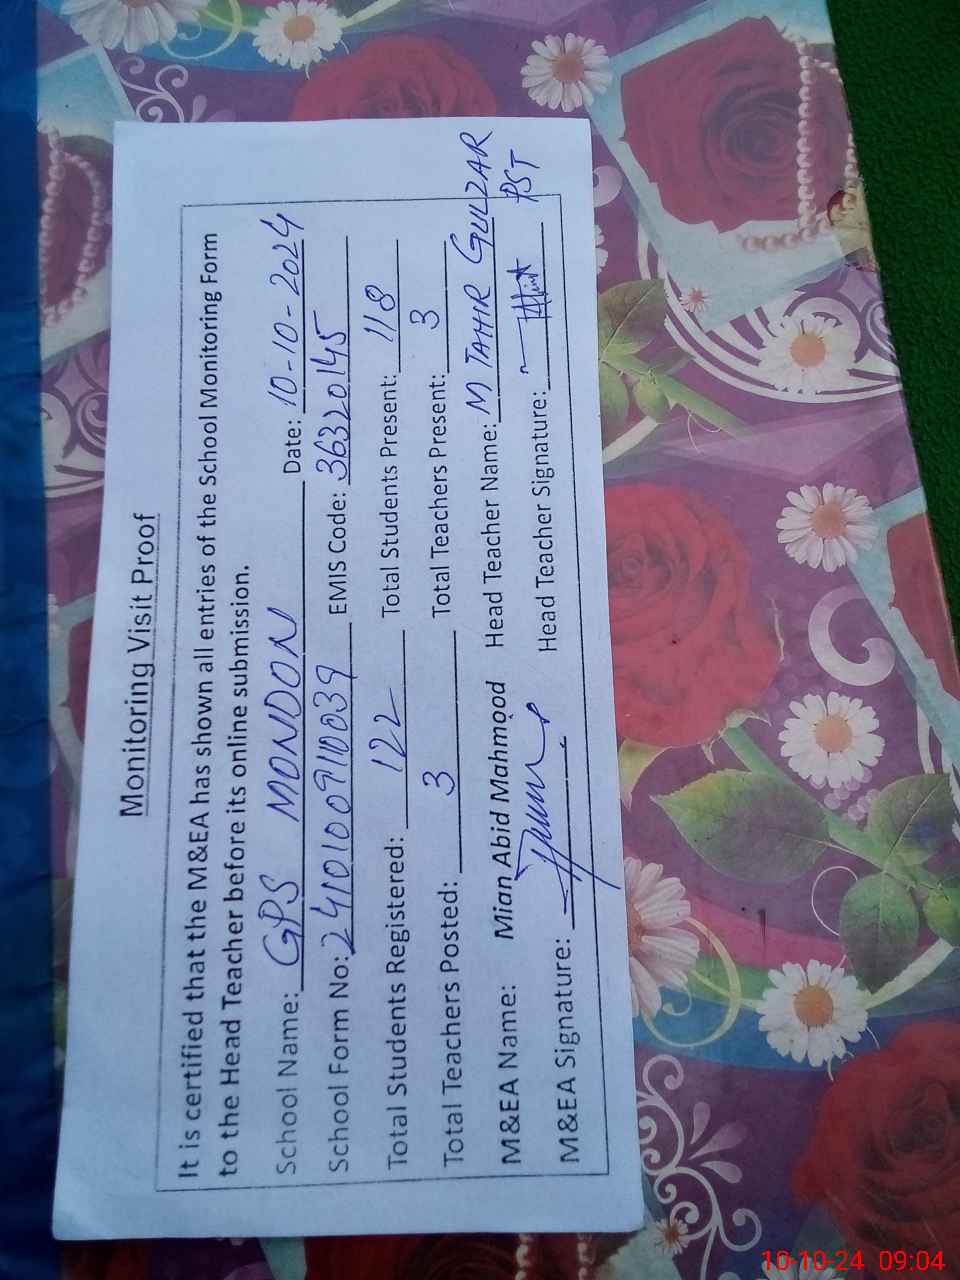 Monitoring Visit Proof
It is certified that the M&EA has shown all entries of the School Monitoring Form
to the Head Teacher before its online submission.
School Name: GPS MONDON Date: 10-10-2024
School Form No: 24101009110039 EMIS Code: 36320145
Total Students Registered: 122 Total Students Present: 118
Total Teachers Posted: 3 Total Teachers Present: 3
M&EA Name: Mian Abid Mahmood Head Teacher Name: M TAHIR GULZAR
M&EA Signature: Head Teacher Signature: PST
10-10-24 09:04